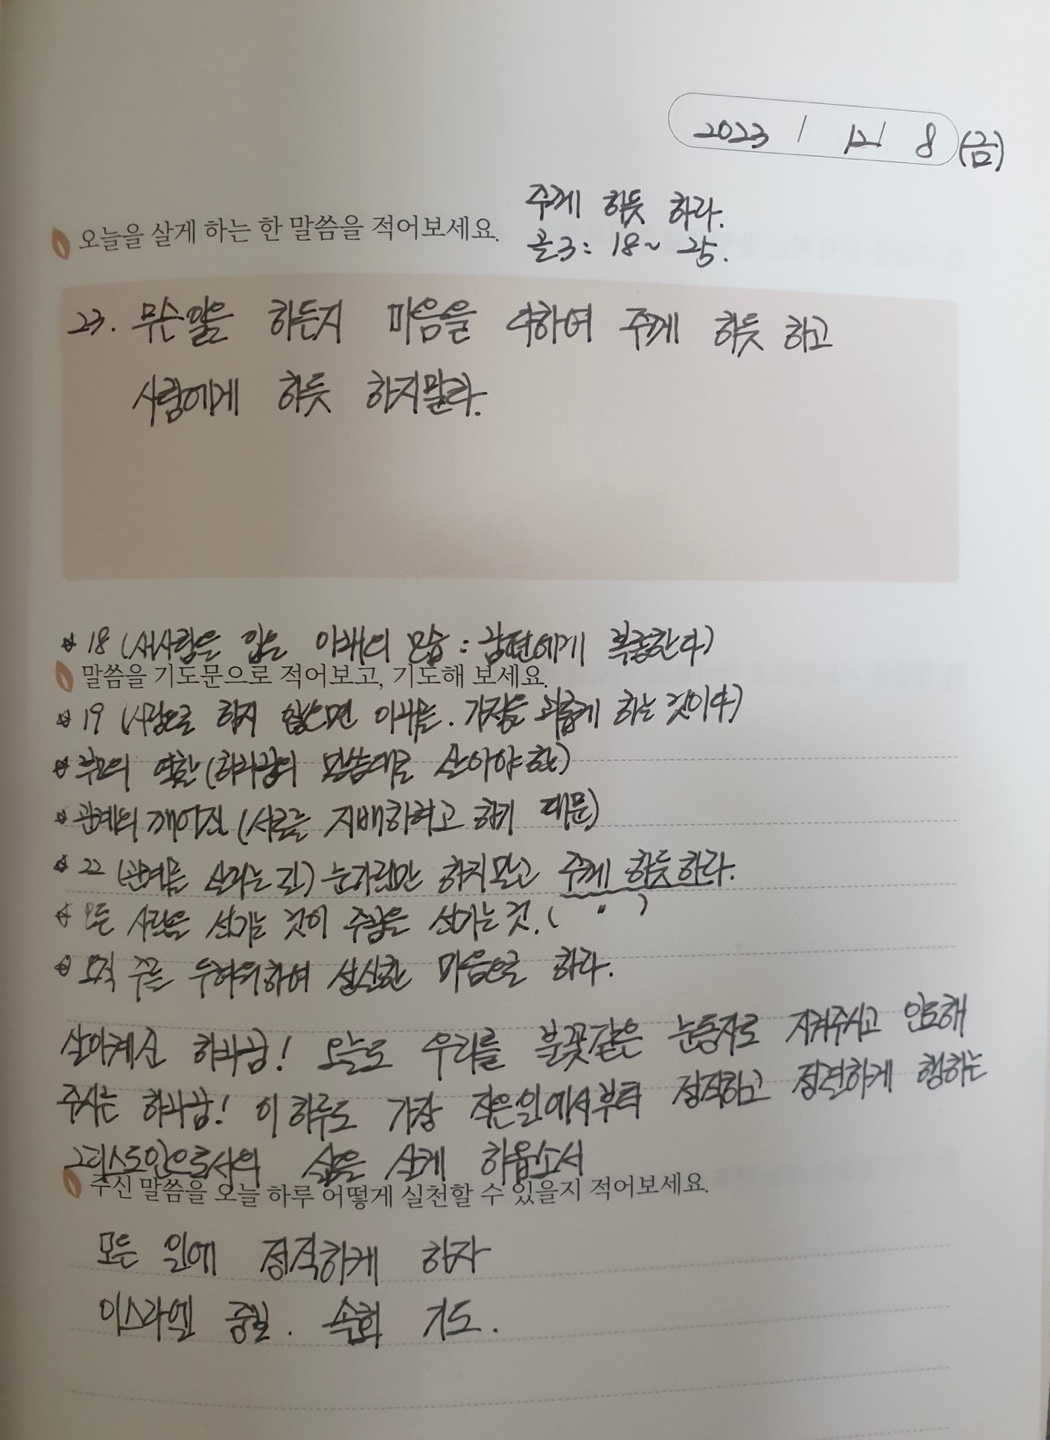 2023 / 12/ 8 (금)
주께 하듯 하라.
오늘을 살게 하는 한 말씀을 적어보세요.
골3: 18~ 25.
23. 무슨일을 하든지 마음을 다하여 주께 하듯 하고
사람에게 하듯 하지말라.
* 18 (새사람을 입은 아내의 모습 : 남편에게 복종한다)
말씀을 기도문으로 적어보고, 기도해 보세요.
* 19 (사랑으로 하지 않으면 아내를. 가정을 괴롭게 하는 것이다)
* 부모의 역할 (하나님의 말씀대로 살아야 함)
* 관계의 깨어짐 (서로를 지배하려고 하기 때문)
* 22 (관계를 살리는 길) 눈가림만 하지말고 주께 하듯하라.
* 모든 사람을 섬기는 것이 주님을 섬기는 것. ( " )
* 오직 주를 두려워하여 성실한 마음으로 하라.
살아계신 하나님! 오늘도 우리를 불꽃같은 눈동자로 지켜주시고 인도해
주시는 하나님! 이 하루도 가장 작은일에서부터 정직하고 정결하게 행하는
그리스도인으로서의 삶을 살게 하옵소서
주신 말씀을 오늘 하루 어떻게 실천할 수 있을지 적어보세요.
모든 일에 정직하게 하자
이스라엘 중일. 속회 기도.